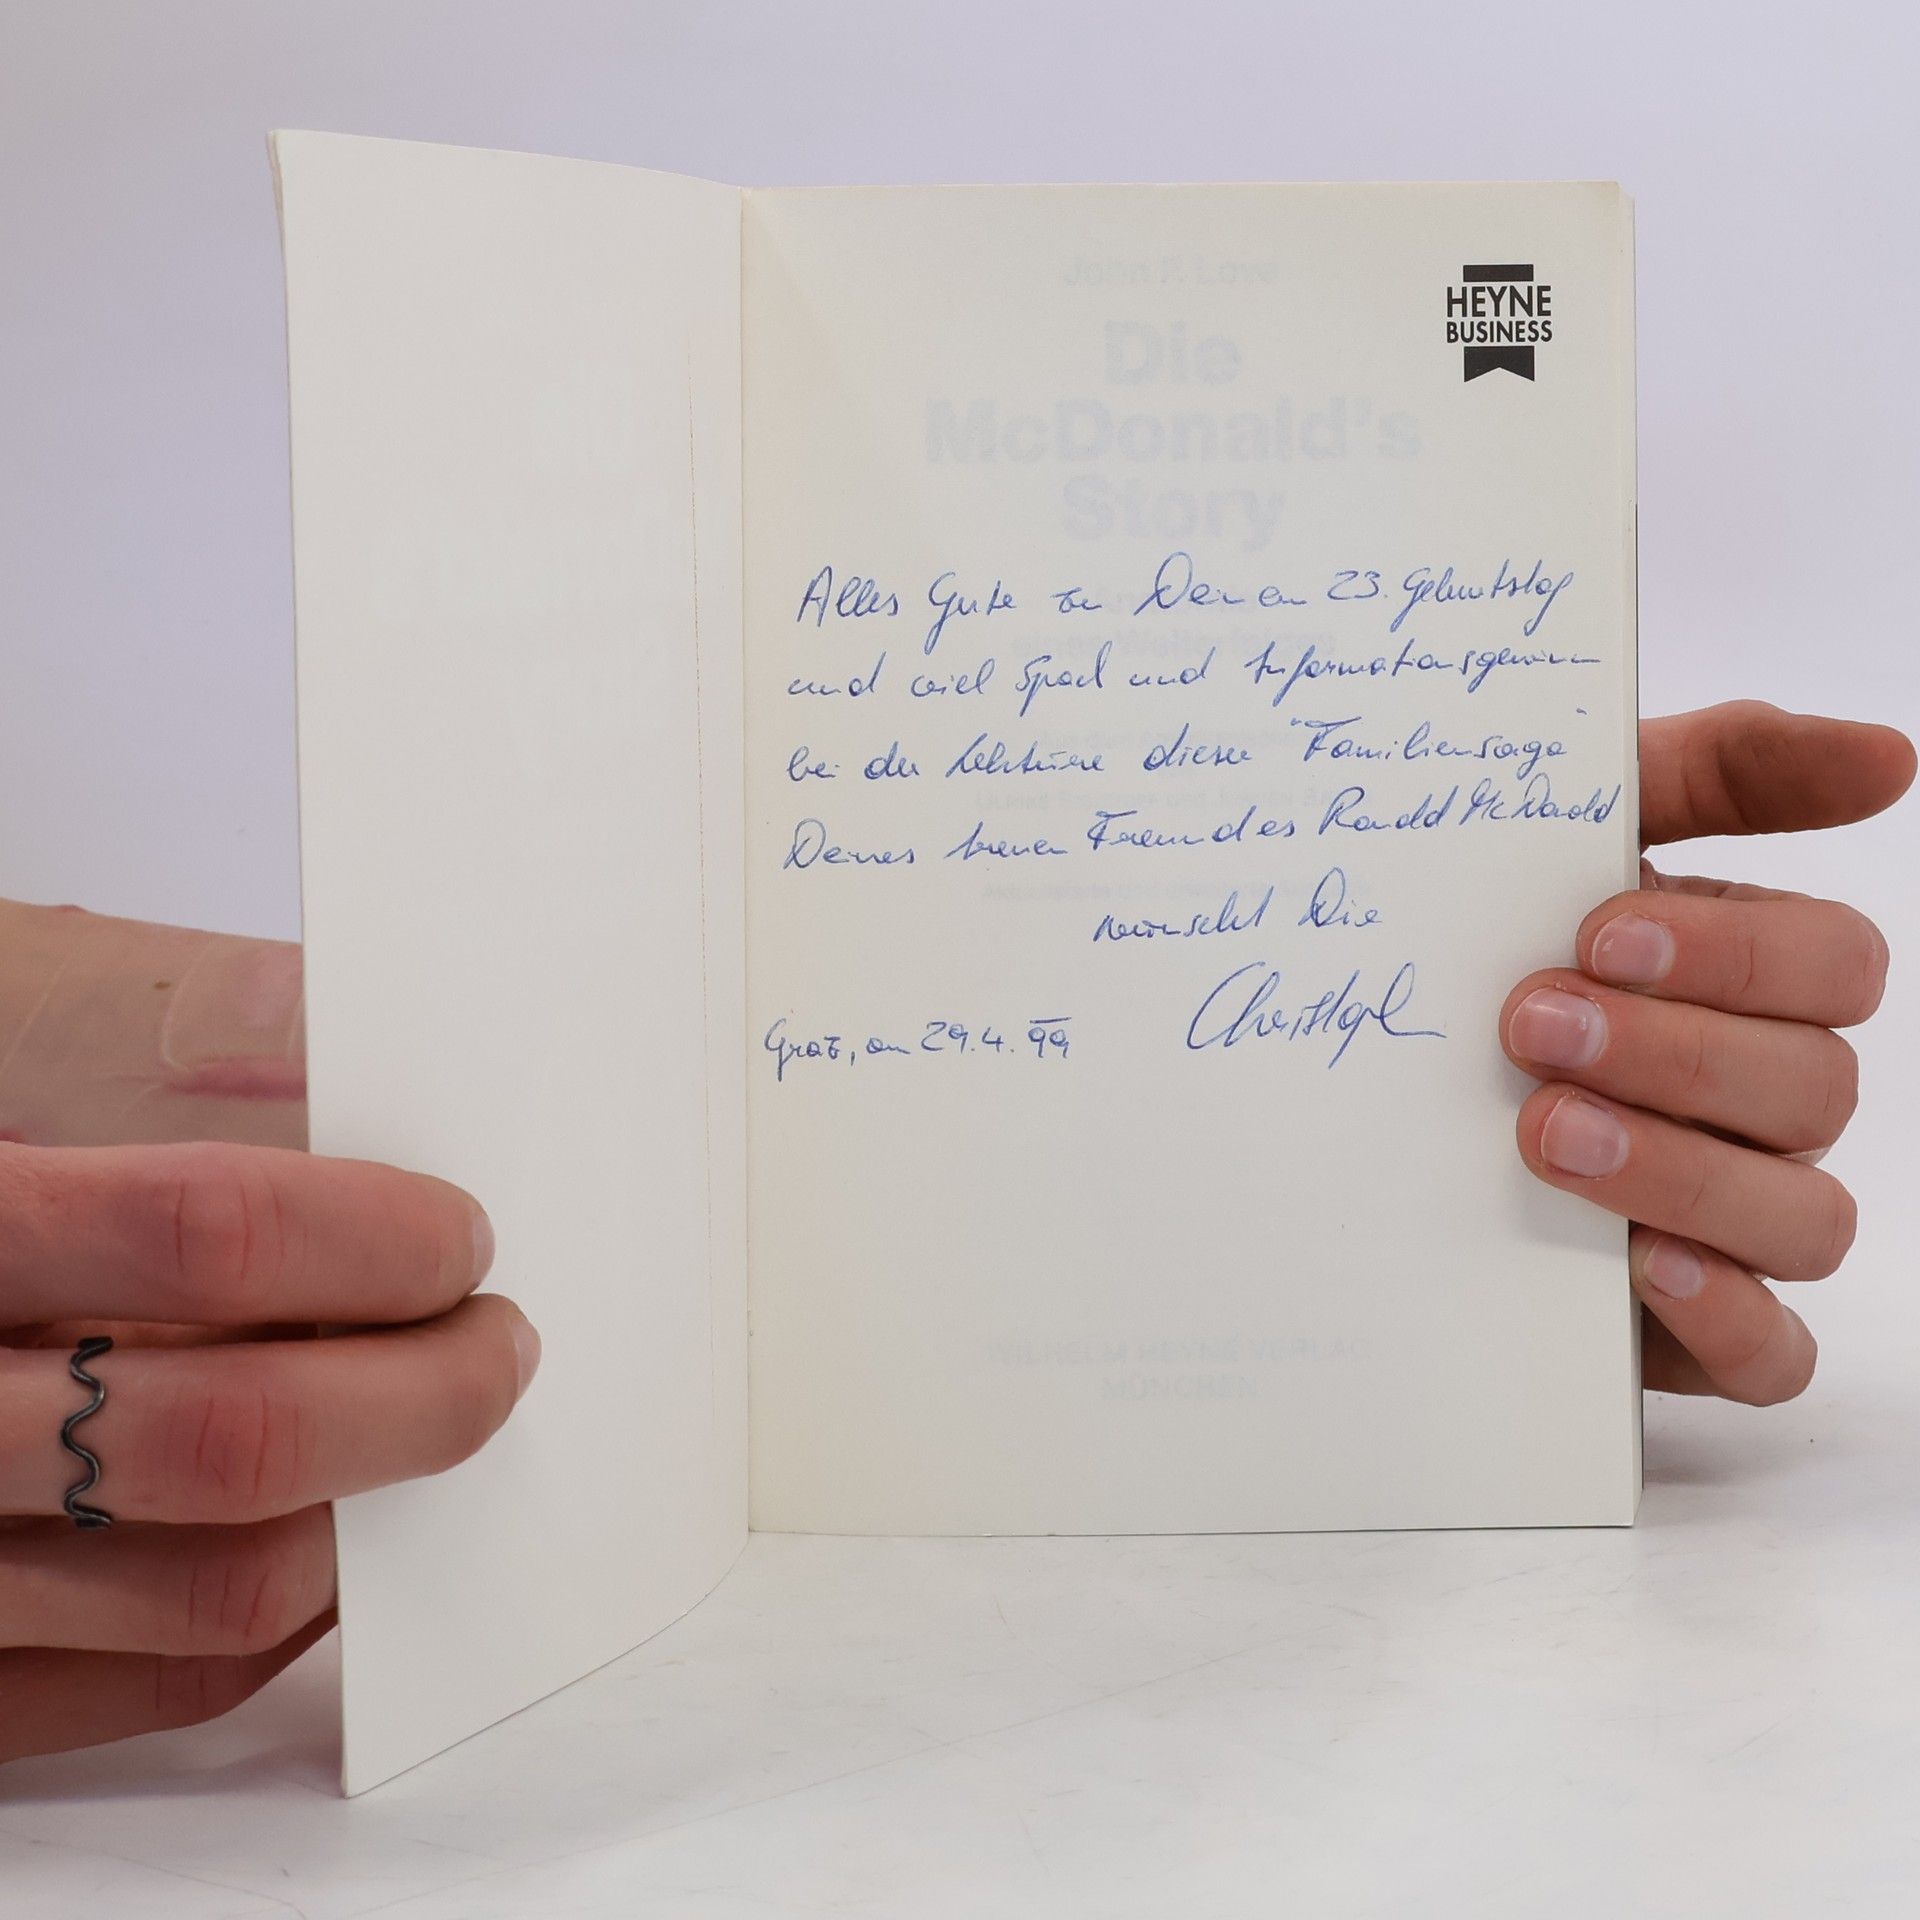 HEYNE
BUSINESS
John F. Love
Die
McDonald's
Story
Alles Gute zu Deinem 23. Geburtstag
und viel Spaß und Informationsgewinn
bei der Lektüre dieser "Familiensaga"
Deines treuen Freundes Ronald McDonald
wünscht Dir
Christoph
Graz, am 29.4.99
WILHELM HEYNE VERLAG
MÜNCHEN